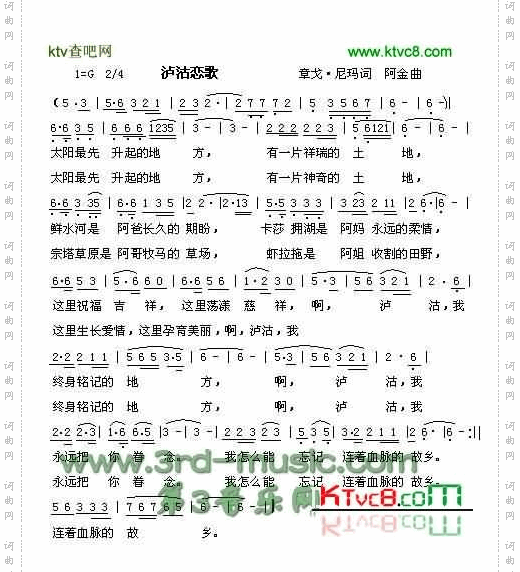 ktv查吧网 www.ktvc8.com
1=G 2/4 泸沽恋歌 章戈·尼玛词 阿金曲
(5·3 | 5·6 3 2 1 | 2 3 2 · | 2 2 0 2 1 2 | 5 3 5 6 7 | 6 - | 6 - )|
6·6 3 5 | 6 6 6 1235 | 3 - | 3 - | 2 2 2 2 2 3 | 5 6121 | 6 - | 6 - |
太阳最先 升起的地 方， 有一片祥瑞的 土 地，
太阳最先 升起的地 方， 有一片神奇的 土 地，
6·6 6 3 35 | 6 6 1 6 3 | 2 · 2 | 2 · 13 | 5·5 6 3 | 3 23 2 1 1 | 2 6 · | 6 - |
鲜水河是 阿爸长久的 期盼， 卡莎 拥湖是 阿妈 永远的柔情，
宗塔草原是 阿哥牧马的 草场， 虾拉拖是 阿姐 收割的田野，
6·6 5 3 | 5 3 · | 2·2 3 2 1 | 2 6 · | 6 - | 5·3 | 5·6 3 2 1 | 2 · 6 |
这里祝福 吉 祥，这里荡漾 慈 祥， 啊， 泸 沽，我
这里生长爱情，这里孕育美丽，啊，泸沽，我
2·2 2 1 1 | 5 6 5 3·5 | 6 - | 6 - | 5·3 | 5·6 3 2 1 | 2 · 6 |
终身铭记的 地 方， 啊， 泸 沽，我
终身铭记的 地 方， 啊， 泸 沽，我
2·2 2·3 | 1·6 6·5 | 3 - | 3 - | 2 2 3 2 3 | 5 3 5 · | 3·2 2 1 1 1 | 2 6 | 6 - :||
永远把 你 眷 念。 我怎么能 忘记 连着血脉的 故乡。
永远把 你 眷 念。 我怎么能 忘记 连着血脉的 故乡。
5·6 3 3 3 | 7 6 7 6 5 | 6 - | 6 - ||
连着血脉的 故 乡。
www.3rd-music.com
第3音乐网
KTvc8.com
词曲网
词曲网
词曲网
词曲网
词曲网
词曲网
词曲网
词曲网